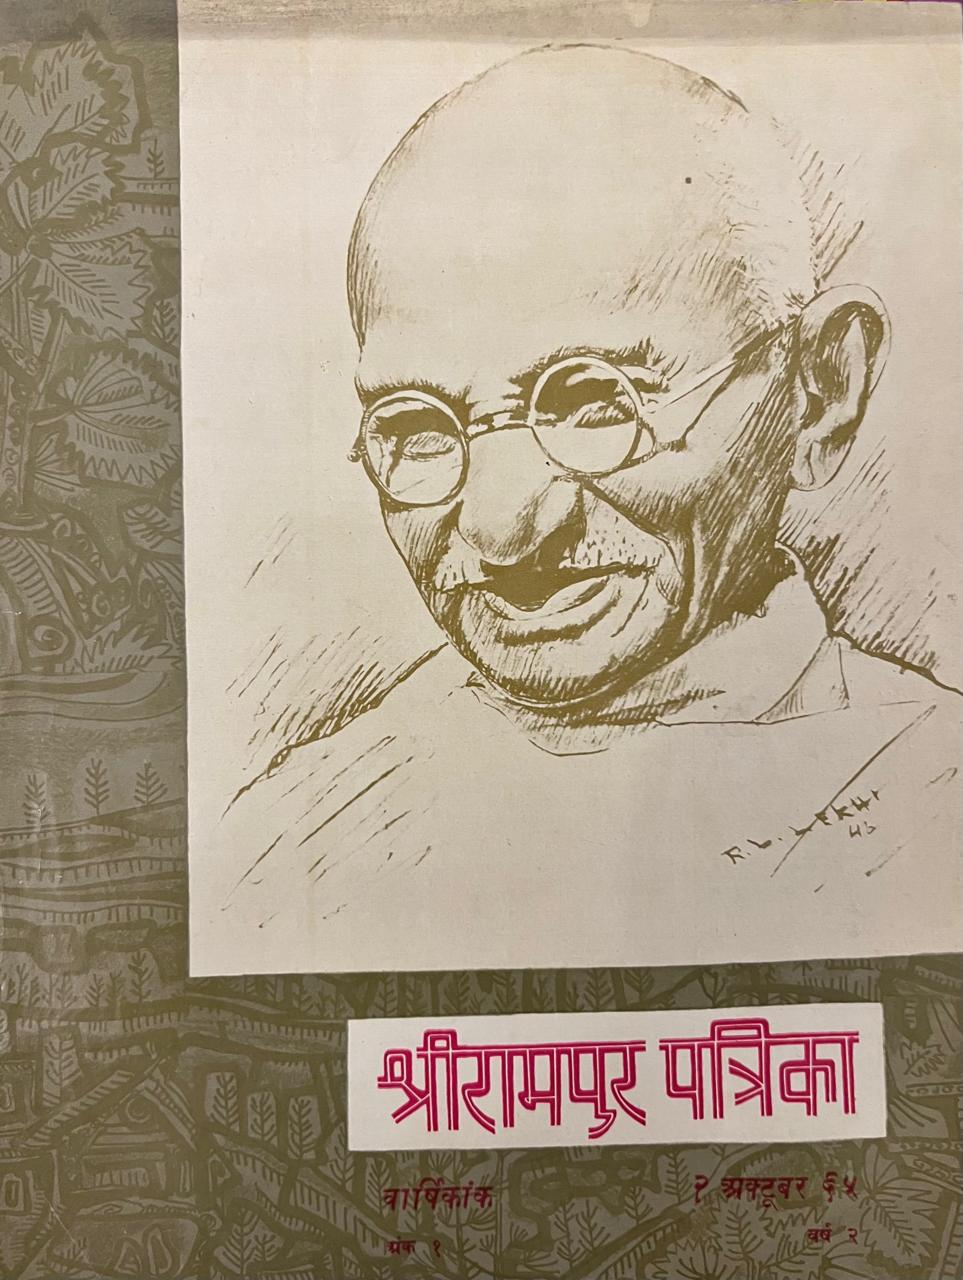 R. L. LEKHI
श्रीरामपुर पत्रिका
वार्षिकांक
२ अक्टूबर ६५
अंक १
वर्ष २